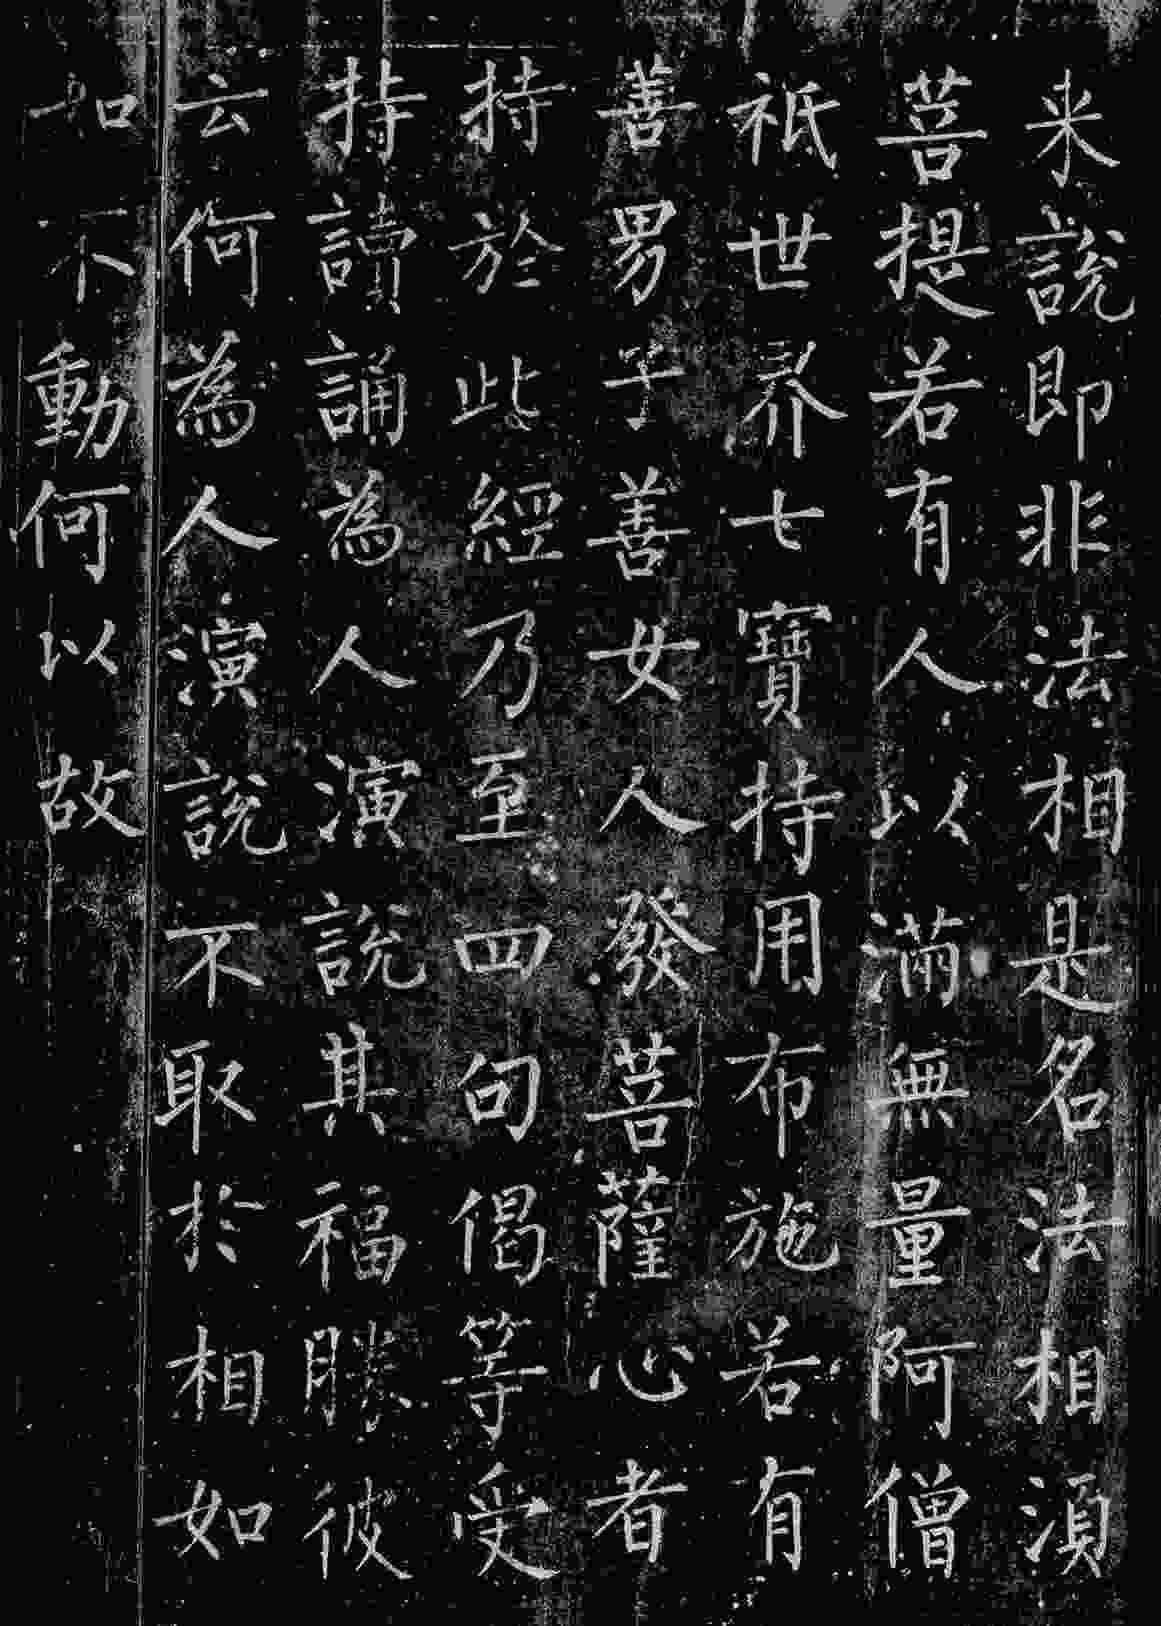 来說即非法相是名法相湏
菩提若有人以滿無量阿僧
祇世界七寶持用布施若有
善男子善女人發菩薩心者
持於此經乃至四句偈等受
持讀誦為人演說其福勝彼
云何為人演說不取於相如
如不動何以故